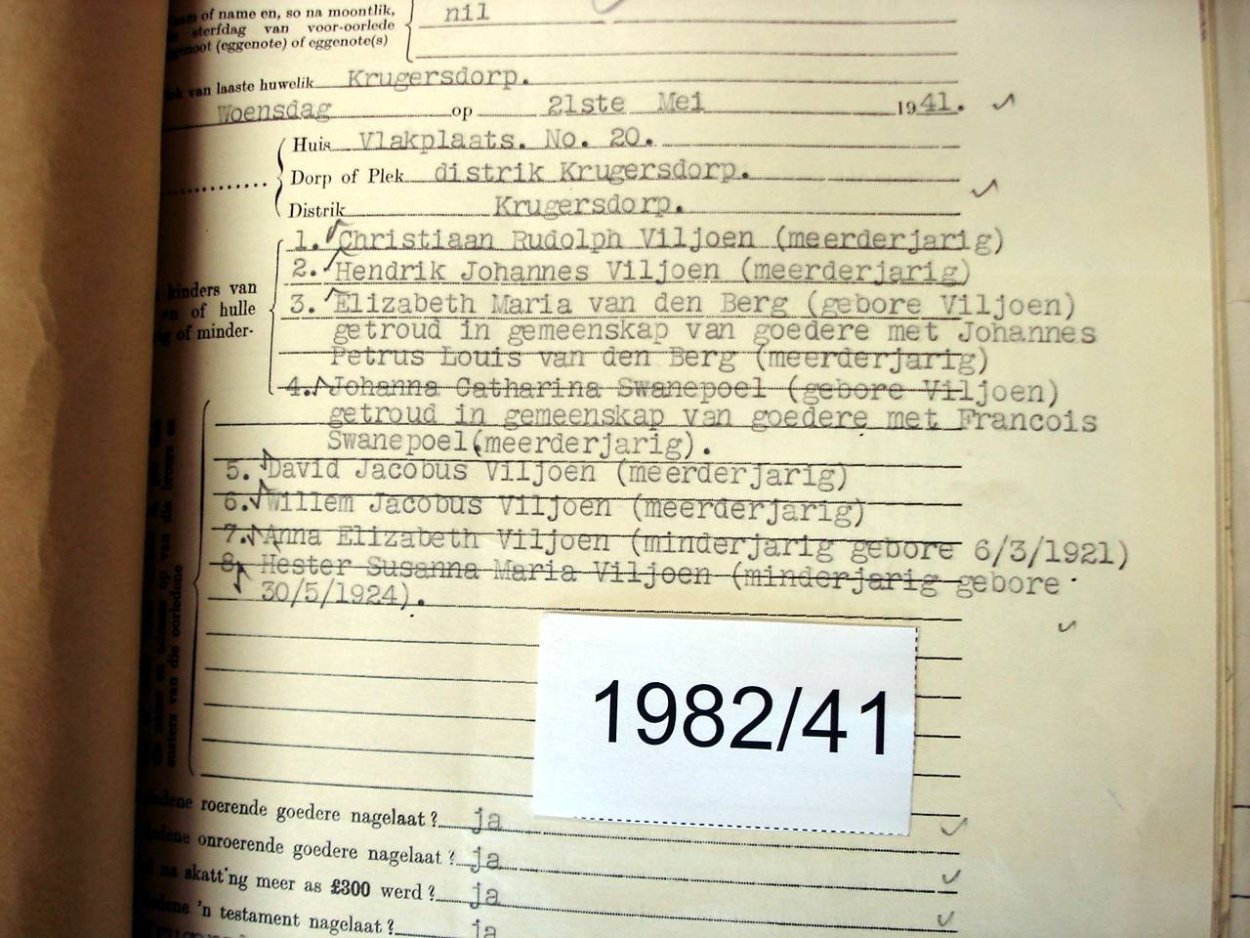 of name en, so na moontlik, nil
sterfdag van voor-oorlede
(eggenote) of eggenote(s)
van laaste huwelik Krugersdorp.
Woensdag op 21ste Mei 1941.
Huis Vlakplaats. No. 20.
Dorp of Plek distrik Krugersdorp.
Distrik Krugersdorp.
1. Christiaan Rudolph Viljoen (meerderjarig)
2. Hendrik Johannes Viljoen (meerderjarig)
kinders van
en of hulle
of minder-
3. Elizabeth Maria van den Berg (gebore Viljoen)
getroud in gemeenskap van goedere met Johannes
Petrus Louis van den Berg (meerderjarig)
4. Johanna Catharina Swanepoel (gebore Viljoen)
getroud in gemeenskap van goedere met Francois
Swanepoel(meerderjarig).
5. David Jacobus Viljoen (meerderjarig)
6. Willem Jacobus Viljoen (meerderjarig)
7. Anna Elizabeth Viljoen (minderjarig gebore 6/3/1921)
8. Hester Susanna Maria Viljoen (minderjarig gebore
30/5/1924).
die name en adresse op van die broers en
susters van die oorledene
1982/41
roerende goedere nagelaat? ja
onroerende goedere nagelaat? ja
na skatt'ng meer as £300 werd? ja
'n testament nagelaat? ja